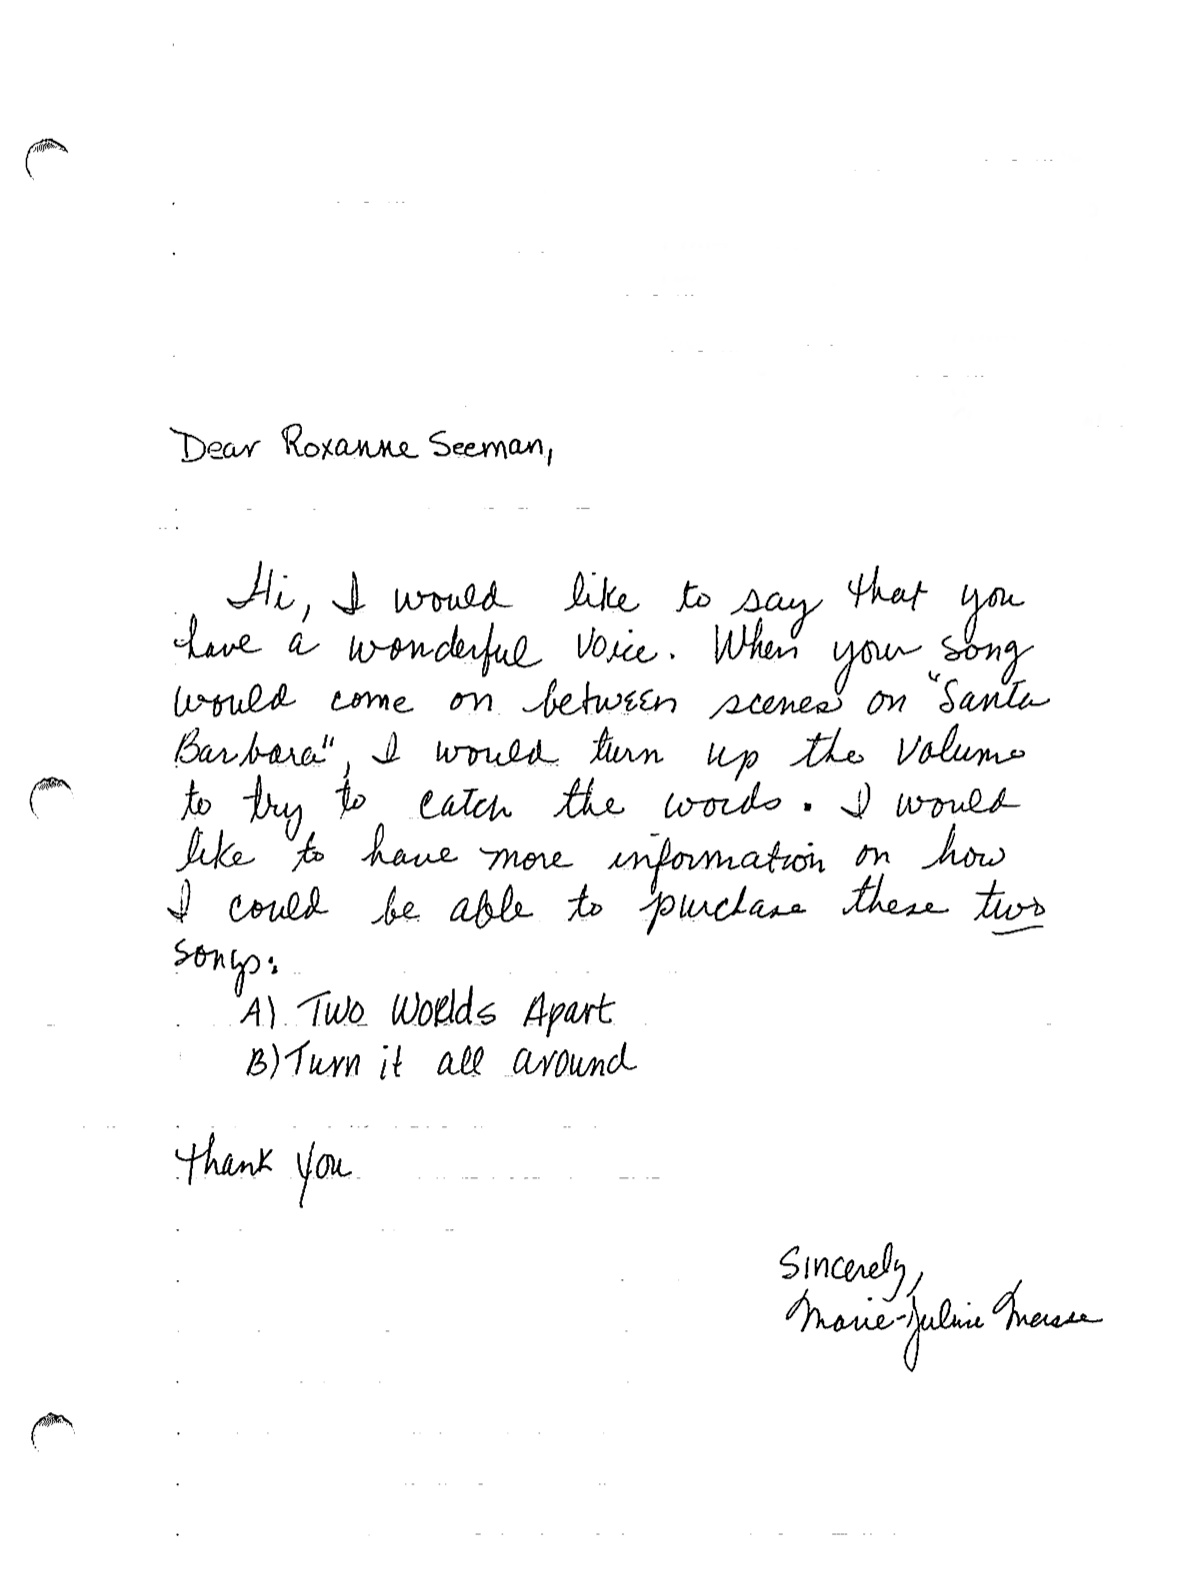 Dear Roxanne Seeman,
Hi, I would like to say that you
have a wonderful voice. When your song
would come on between scenes on "Santa
Barbara", I would turn up the volume
to try to catch the words. I would
like to have more information on how
I could be able to purchase these two
songs:
A) Two Worlds Apart
B) Turn it all around
Thank you
Sincerely,
Marie-Juline